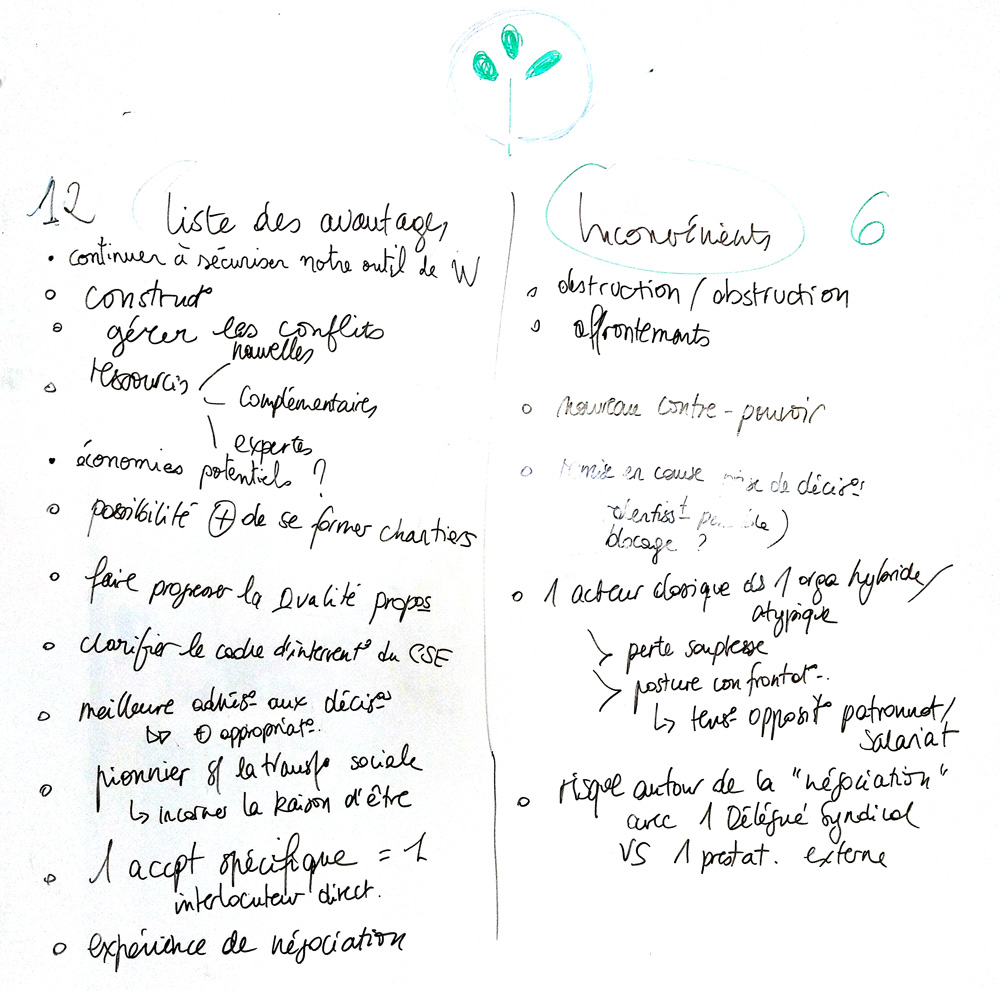 12
liste des avantages
• continuer à sécuriser notre outil de W
° construct°
° gérer les conflits
nouvelles
° ressources
complémentaires
expertes
• économies potentiels ?
° possibilité ⊕ de se former chantiers
° faire progresser la Qualité propos
° clarifier le cadre d'intervent° du CSE
° meilleure adhés° aux décis°
⊕ appropriat°.
° pionnier la transfo sociale
↳ incarner la Raison d'être
° 1 accpt spécifique = 1
interlocuteur direct.
° expérience de négociation
Inconvénients
6
° destruction / obstruction
° affrontements
° nouveau contre-pouvoir
° remise en cause prise de décis°
blocage ?
° 1 acteur classique ds 1 orga hybride/
atypique
> perte souplesse
> posture confrontat°.
↳ tens° opposit° patronnat/
salariat
° risque autour de la "négociation"
avec 1 Délégué Syndical
VS 1 prestat. externe